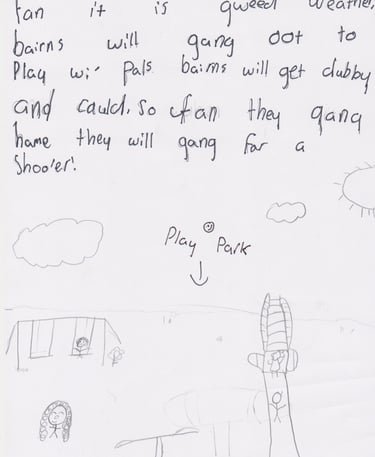 fan it is gweed weather,
bairns will gang oot to
Play wi' pals. bairns will get clubby
and cauld, so fan they gang
hame they will gang for a
Shoo'er!
Play Park